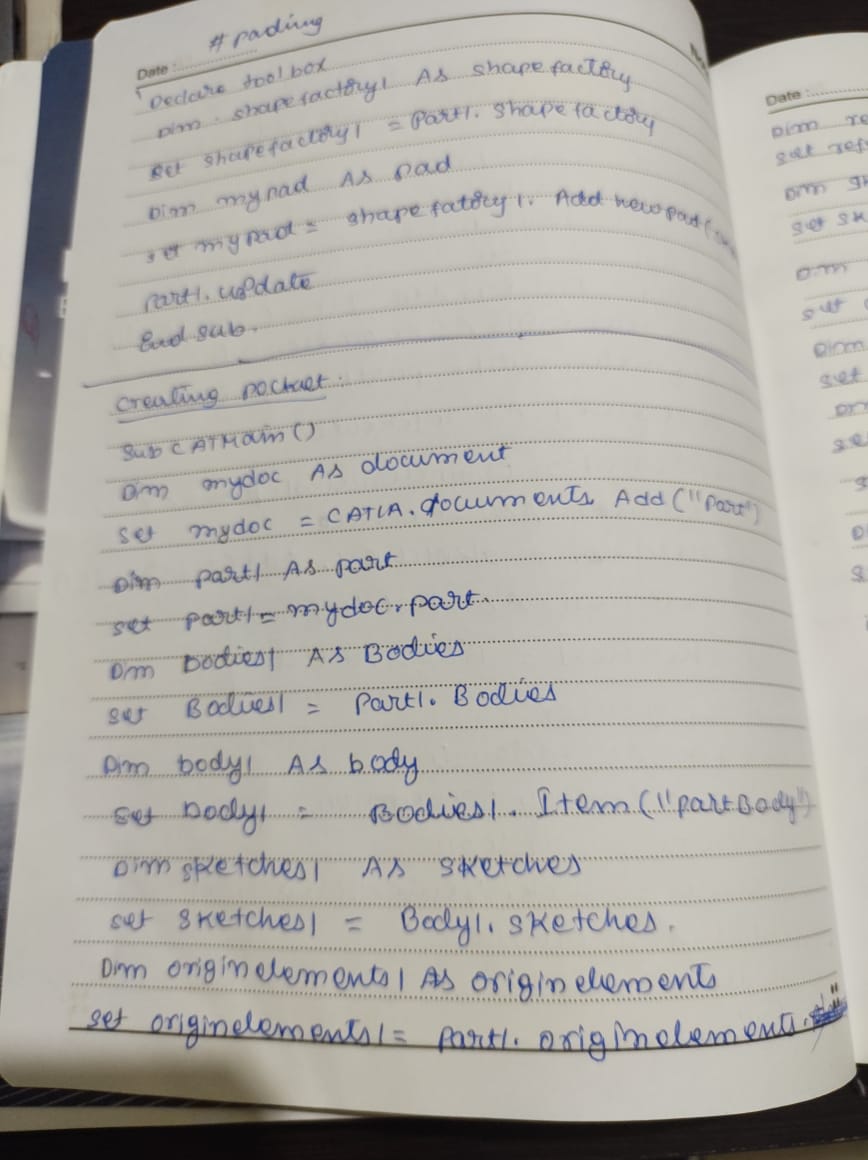 # pading
Date :
Declare toolbox
Dim shapefactory1 As shapefactory
set shapefactory1 = Part1. shapefactory
Dim mypad As pad
set mypad = shapefatory1. Add newpad(
part1. update
End sub.
creating pocket :
Sub CATMain ()
Dim mydoc As document
set mydoc = CATIA. documents. Add ("Part")
Dim part1 As part
set part1 = mydoc. part.
Dim bodies1 As Bodies
set Bodies1 = Part1. Bodies
Dim body1 As body
set body1 = Bodies1. Item ("partBody")
Dim sketches1 As sketches
set sketches1 = Body1. sketches.
Dim originelements1 As originelements
set originelements1 = part1. originelements.
Date :
Dim re
set ref
Dim
set sk
Dim
set
Dim
set